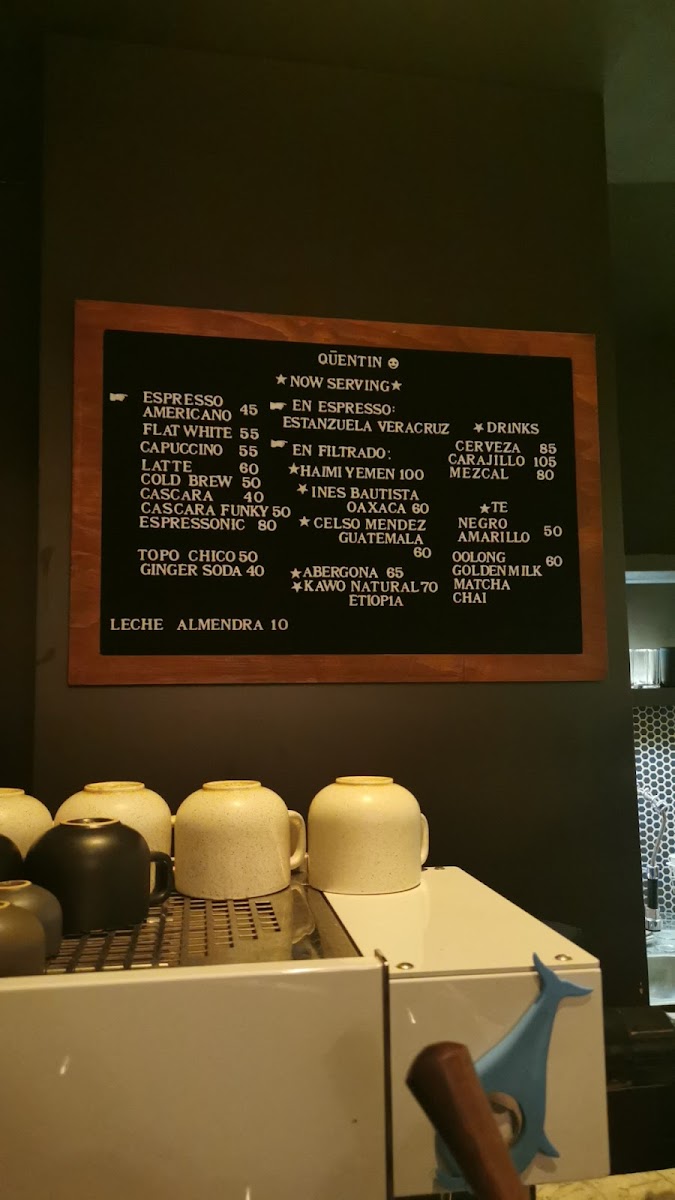 QŪENTIN
NOW SERVING
ESPRESSO
AMERICANO 45
FLAT WHITE 55
CAPUCCINO 55
LATTE 60
COLD BREW 50
CASCARA 40
CASCARA FUNKY 50
ESPRESSONIC 80
TOPO CHICO 50
GINGER SODA 40
LECHE ALMENDRA 10
EN ESPRESSO:
ESTANZUELA VERACRUZ
EN FILTRADO:
HAIMI YEMEN 100
INES BAUTISTA
OAXACA 60
CELSO MENDEZ
GUATEMALA
60
ABERGONA 65
KAWO NATURAL 70
ETIOPIA
DRINKS
CERVEZA 85
CARAJILLO 105
MEZCAL 80
TE
NEGRO
AMARILLO 50
OOLONG
GOLDEN MILK 60
MATCHA
CHAI